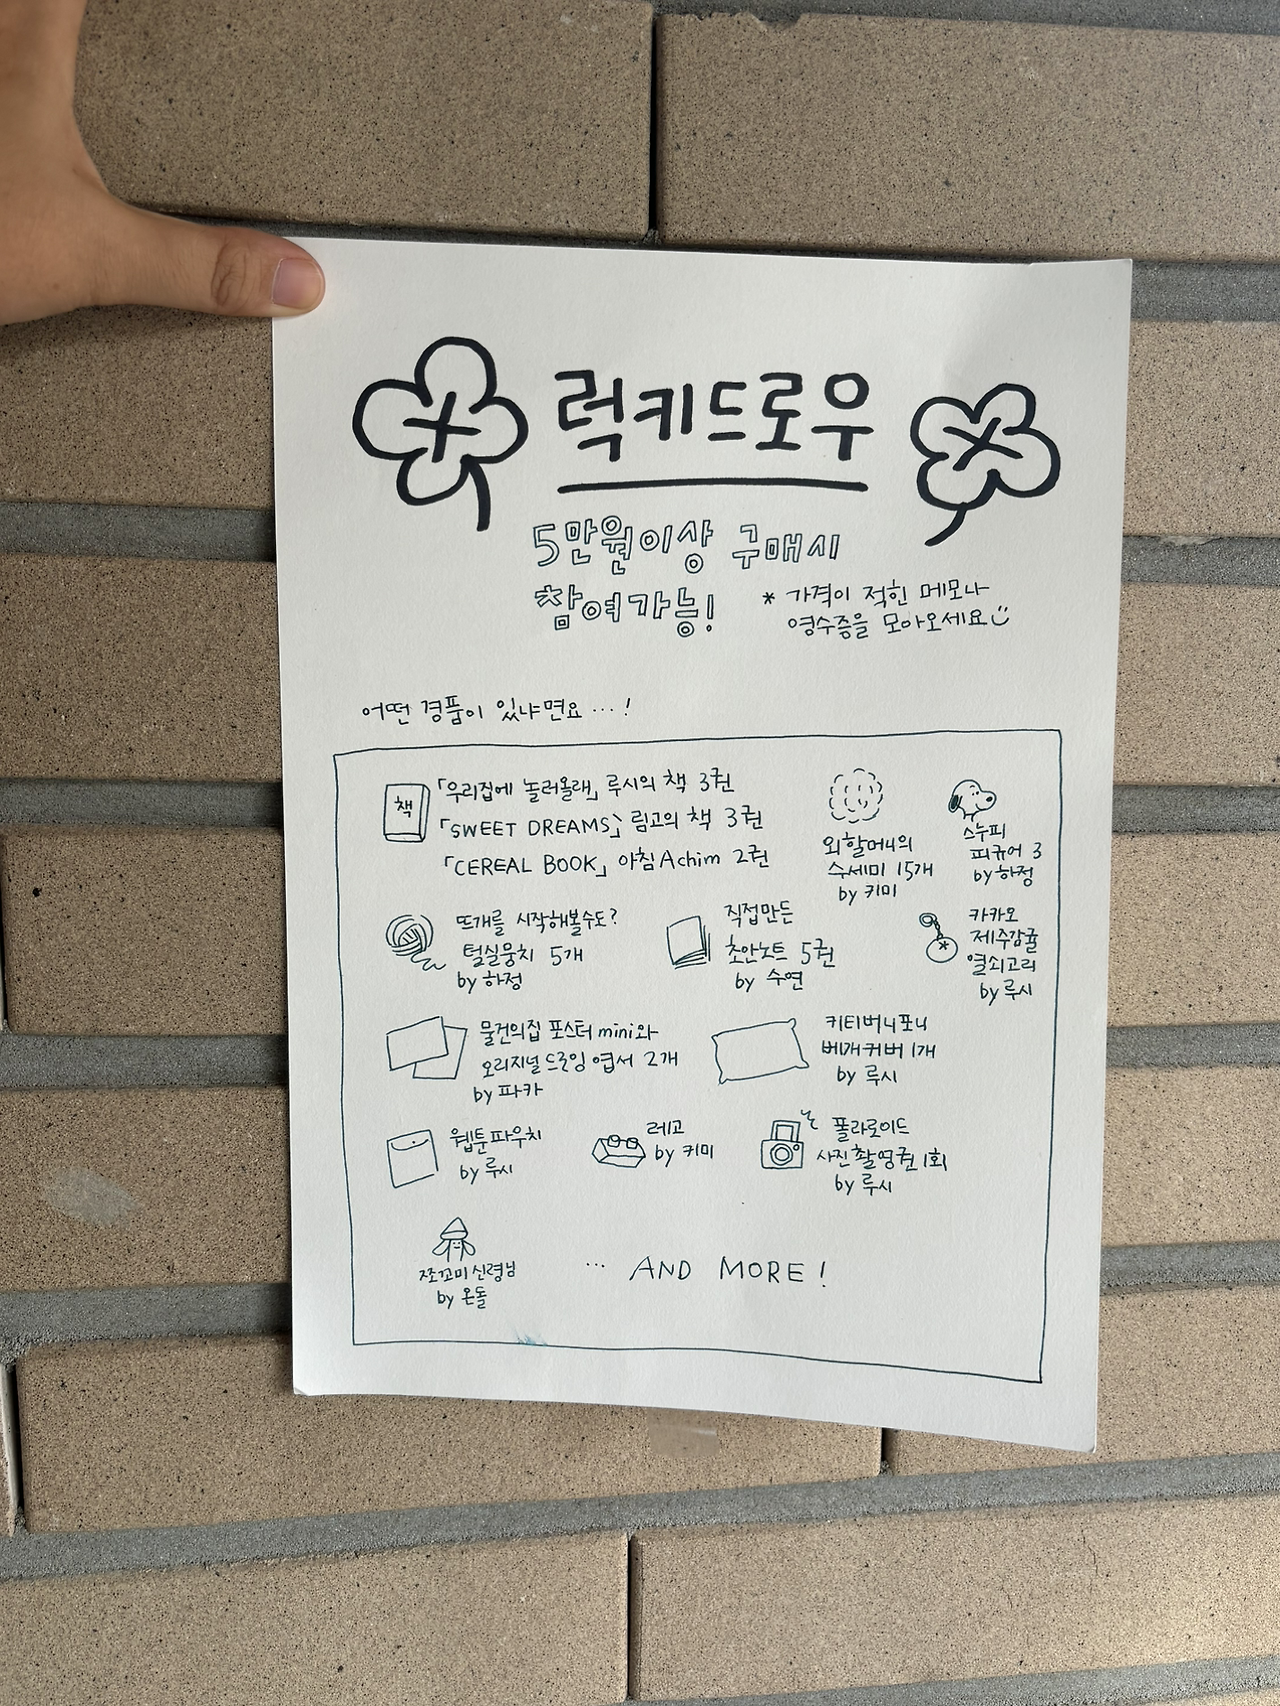 럭키드로우
5만원이상 구매시
참여가능!
* 가격이 적힌 메모나
영수증을 모아오세요
어떤 경품이 있냐면요 ... !
책
「우리집에 놀러올래」 루시의 책 3권
「SWEET DREAMS」 림고의 책 3권
「CEREAL BOOK」 아침 Achim 2권
외할머니의
수세미 15개
by 키미
스누피
피규어 3
by 하정
뜨개를 시작해볼수도?
털실뭉치 5개
by 하정
직접만든
초안노트 5권
by 수연
카카오
제주감귤
열쇠고리
by 루시
물건의집 포스터 mini와
오리지널 드로잉 엽서 2개
by 파카
키티버니포니
베개커버 1개
by 루시
웹툰파우치
by 루시
레고
by 키미
폴라로이드
사진촬영권 1회
by 루시
쪼꼬미신령님
by 온돌
... AND MORE !